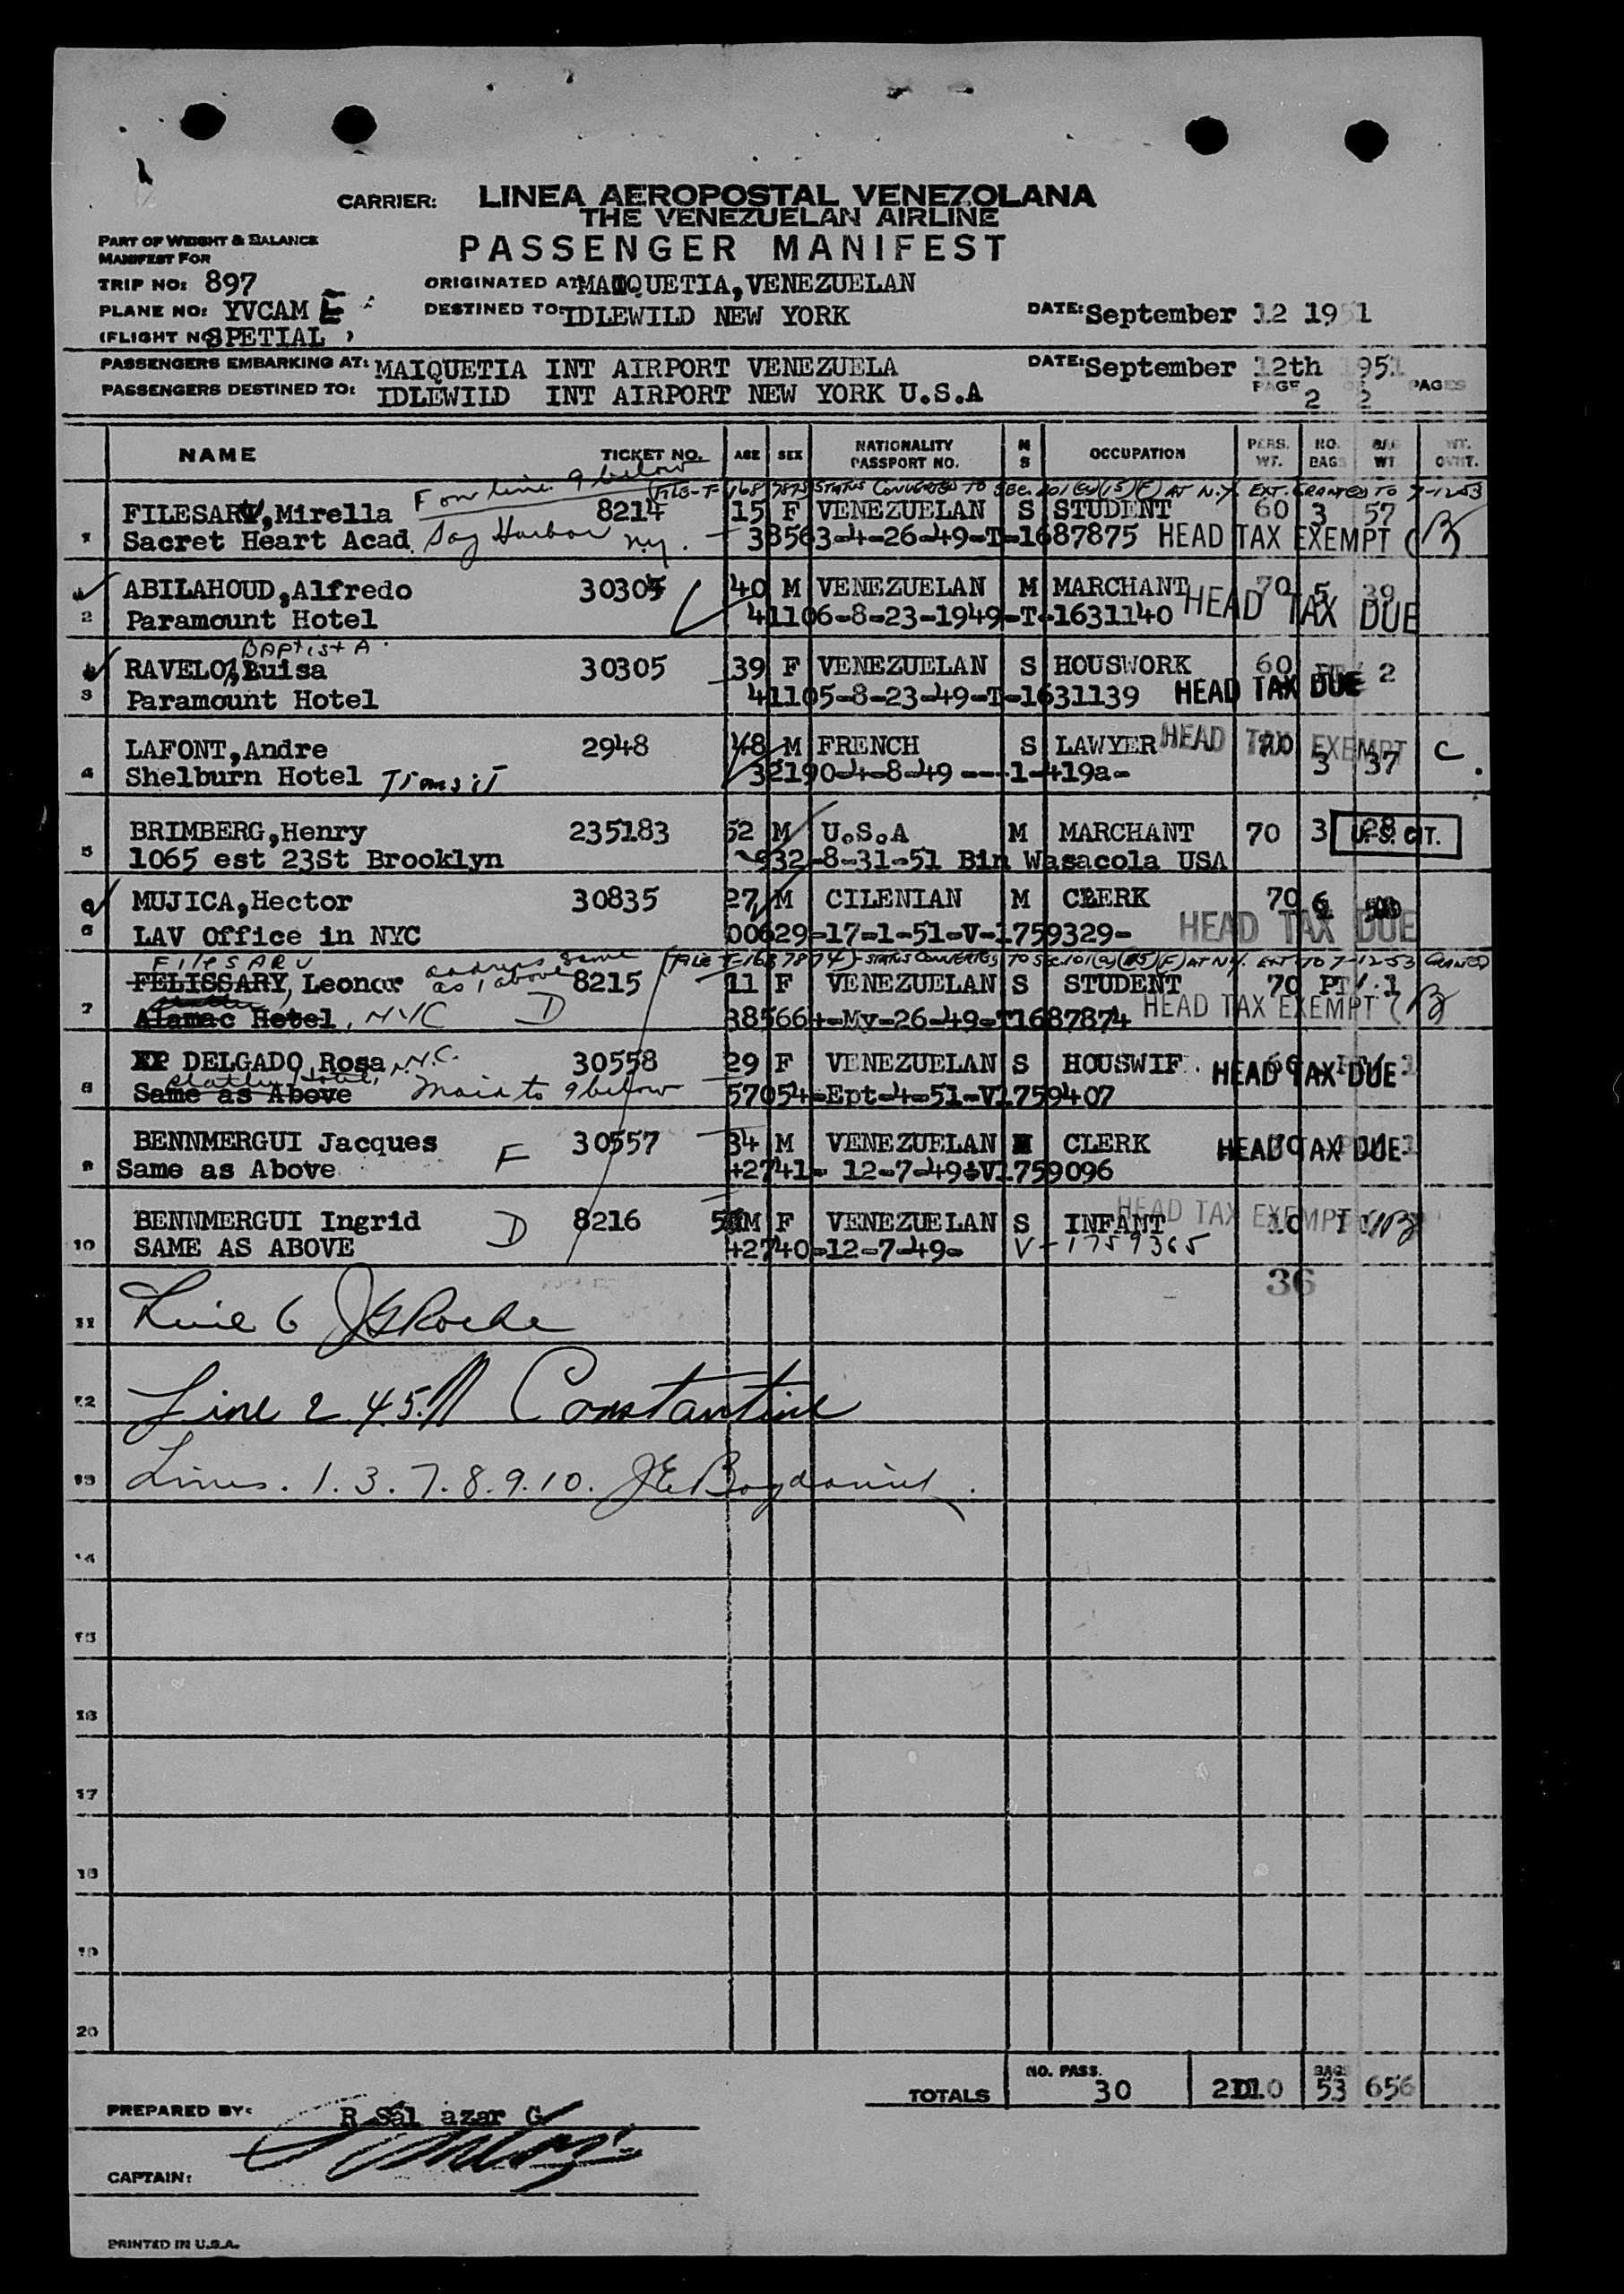 CARRIER: LINEA AEROPOSTAL VENEZOLANA
THE VENEZUELAN AIRLINE
PART OF WEIGHT & BALANCE
MANIFEST FOR
PASSENGER MANIFEST
TRIP NO: 897
ORIGINATED AT: MAIQUETIA, VENEZUELAN
PLANE NO: YVCAM E
DESTINED TO: IDLEWILD NEW YORK
DATE: September 12 1951
(FLIGHT NO SPETIAL )
PASSENGERS EMBARKING AT: MAIQUETIA INT AIRPORT VENEZUELA
DATE: September 12th 1951
PASSENGERS DESTINED TO: IDLEWILD INT AIRPORT NEW YORK U.S.A
PAGE 2 OF 2 PAGES
NAME TICKET NO. AGE SEX NATIONALITY PASSPORT NO. M S OCCUPATION PERS. WT. NO. BAGS BAG WT. WT. OVHT.
F on line 9 below (FILE-T-1687875) STATUS CONVERTED TO SEC. 101(a)(15)(F) AT N.Y. EXT. GRANTED TO 7-12-53
FILESARV, Mirella 8214 15 F VENEZUELAN S STUDENT 60 3 57
1 Sacret Heart Acad. Sag Harbor N.Y. 38563-4-26-49-T-1687875 HEAD TAX EXEMPT (B
ABILAHOUD, Alfredo 30304 40 M VENEZUELAN M MARCHANT 70 5 39
2 Paramount Hotel 41106-8-23-1949-T-1631140 HEAD TAX DUE
BAPtistA
RAVELO, Luisa 30305 39 F VENEZUELAN S HOUSWORK 60 2
3 Paramount Hotel 41105-8-23-49-T-1631139 HEAD TAX DUE
LAFONT, Andre 2948 48 M FRENCH S LAWYER HEAD TAX EXEMPT C
4 Shelburn Hotel Transit 32190-4-8-49 ----1-419a- 3 37
BRIMBERG, Henry 235183 52 M U.S.A M MARCHANT 70 3 28 U.S. CIT.
5 1065 est 23St Brooklyn 932-8-31-51 Bin Wasacola USA
MUJICA, Hector 30835 27 M CILENIAN M CLERK 70 6
6 LAV Office in NYC 00629-17-1-51-V-1759329- HEAD TAX DUE
FilESARV address same as 1 above (FILE T-1687874)-STATUS CONVERTED TO Sec. 101(a)(15)(F) AT N.Y. EXT TO 7-12-53 GRANTED
FELISSARY, Leonor 8215 11 F VENEZUELAN S STUDENT 70 PT 1
7 Alamac Hotel, NYC D 38566+-My-26-49-T1687874 HEAD TAX EXEMPT (B
XP DELGADO Rosa N.C. 30558 29 F VENEZUELAN S HOUSWIF. HEAD TAX DUE
8 Same as Above Maid to 9 below 57054-Ept-4-51-V1759407
BENNMERGUI Jacques F 30557 34 M VENEZUELAN CLERK HEAD TAX DUE
9 Same as Above 42741- 12-7-49-V1759096
BENNMERGUI Ingrid D 8216 M F VENEZUELAN S INFANT HEAD TAX EXEMPT
10 SAME AS ABOVE 42740-12-7-49- V-1759365
36
11 Line 6 JG Roche
12 Line 2 4.5. Constantine
13 Lines. 1.3.7.8.9.10.
14
15
16
17
18
19
20
TOTALS NO. PASS. 30 BAGS 53 656
PREPARED BY: R Sal azar G
CAPTAIN:
PRINTED IN U.S.A.